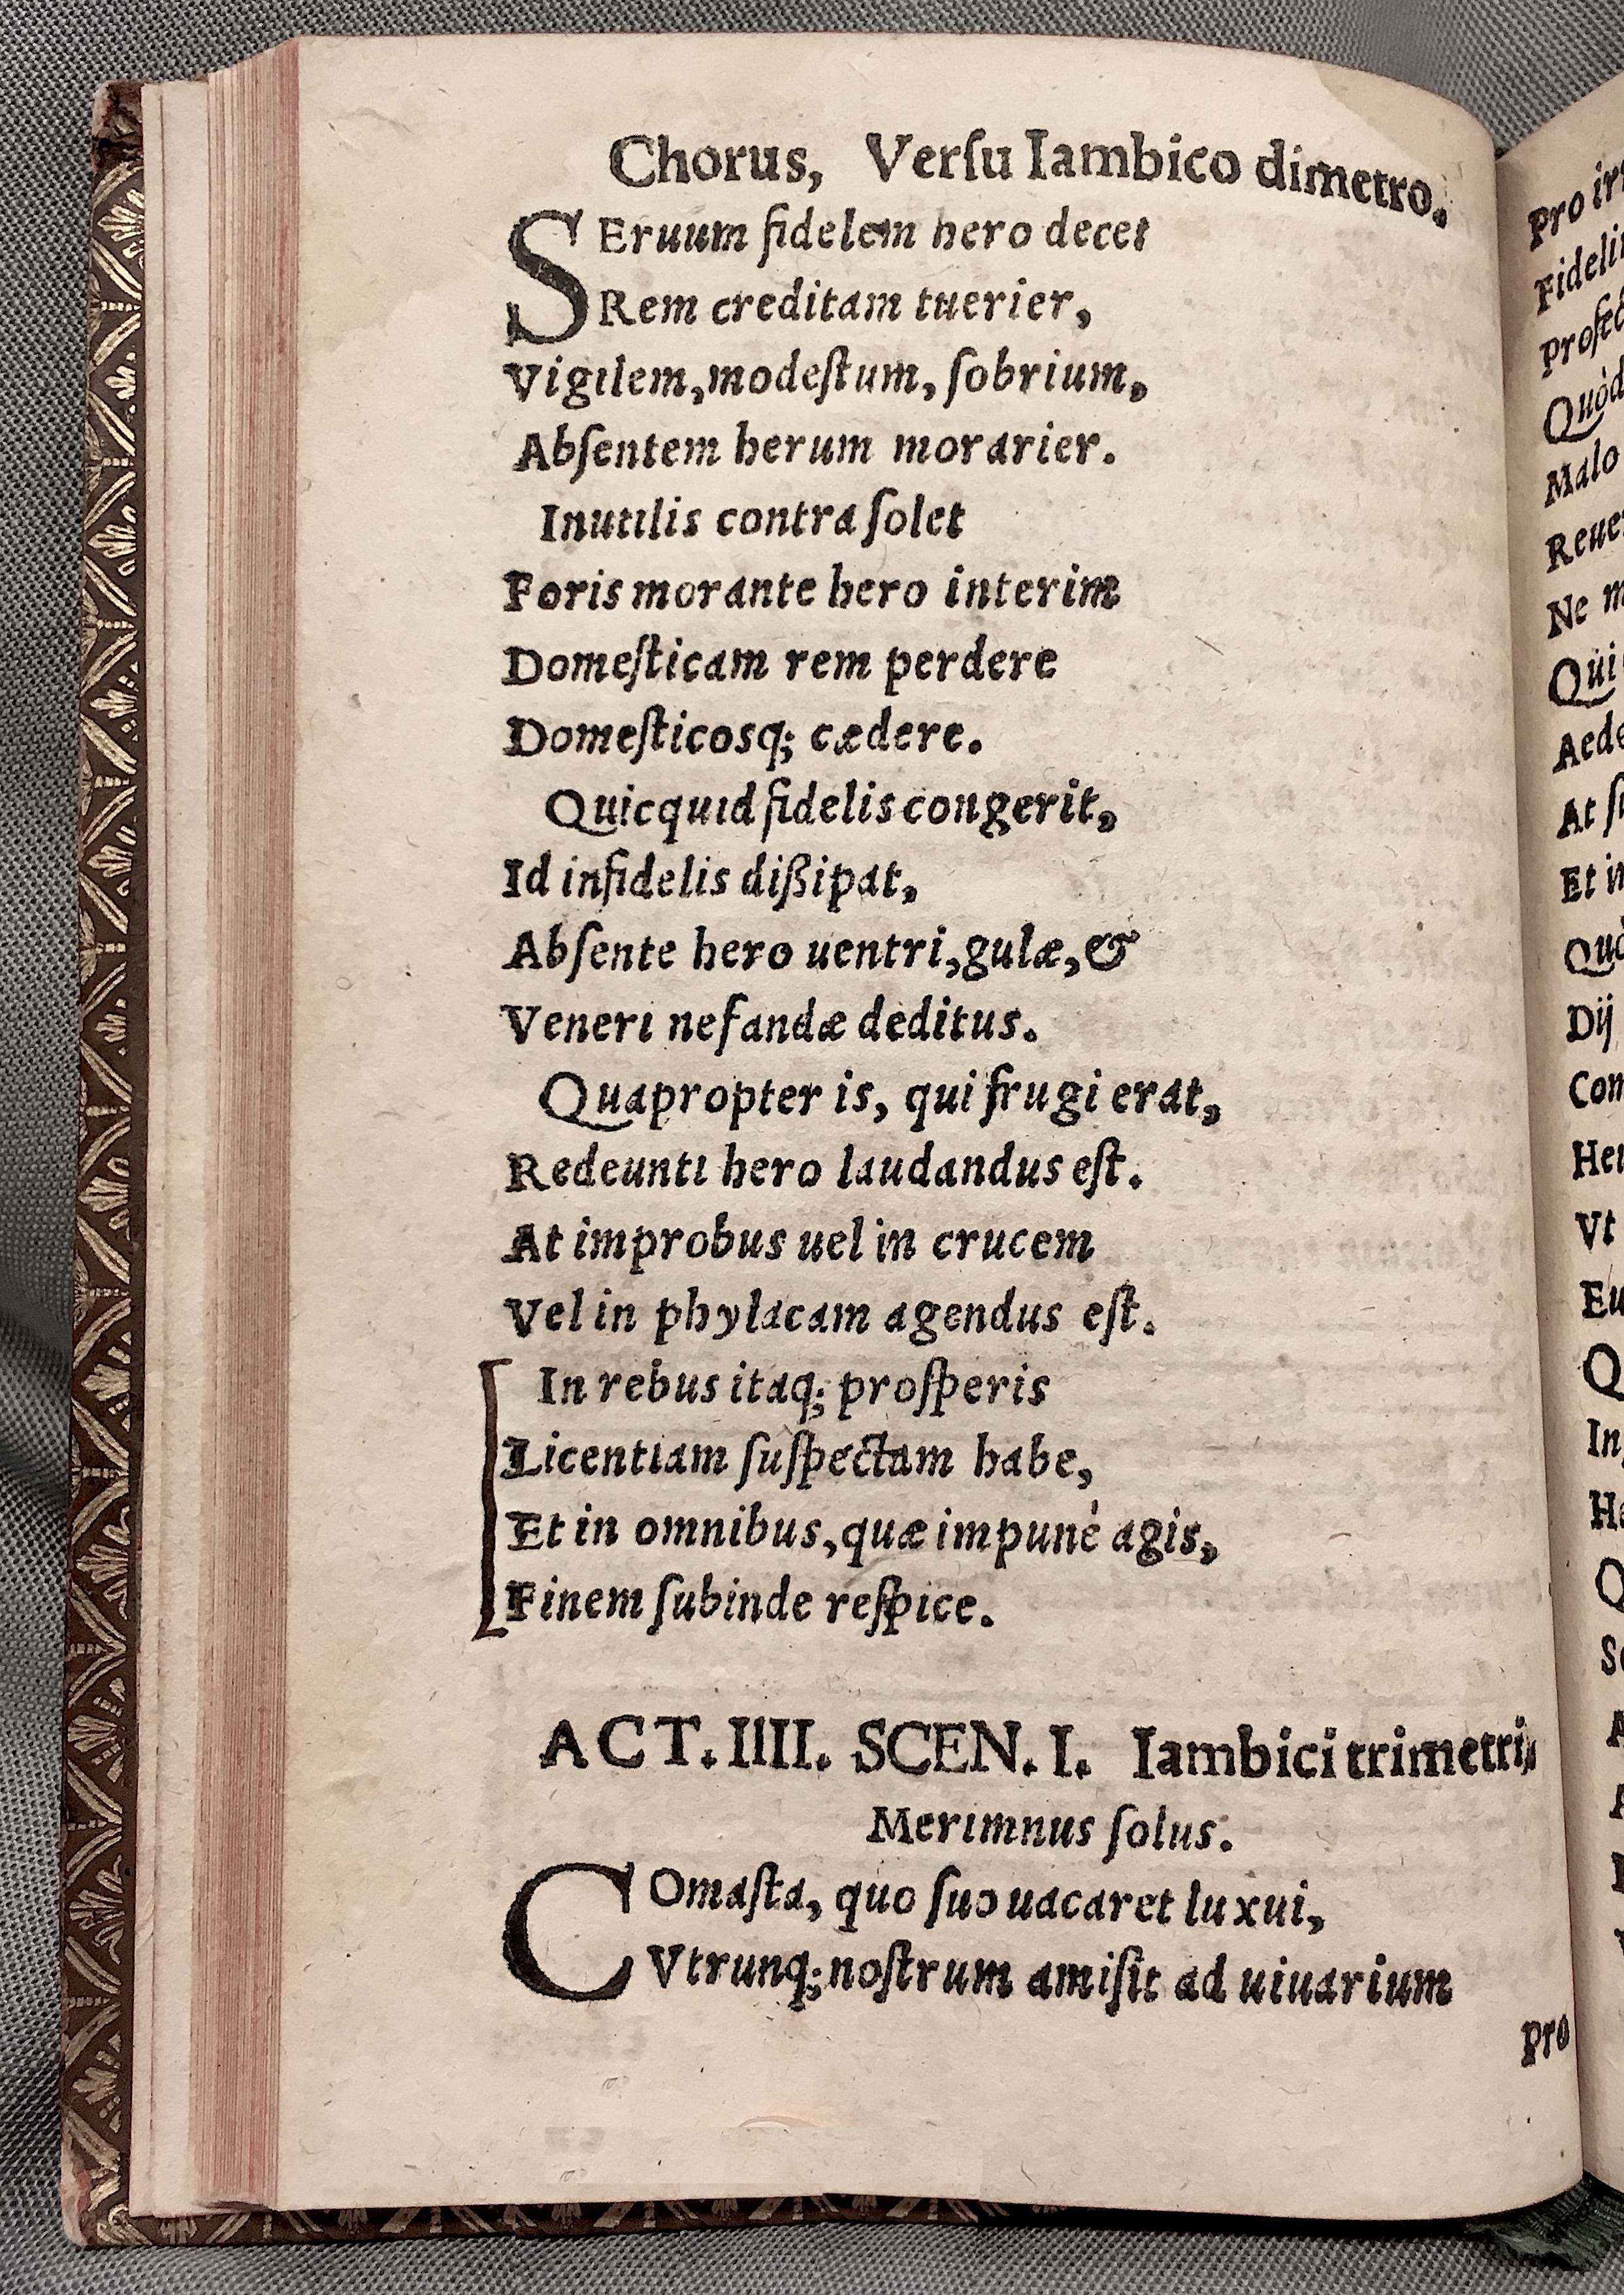 Chorus, Verſu Iambico dimetro.
SEruum fidelem hero decet
Rem creditam tuerier,
Vigilem, modeſtum, ſobrium,
Abſentem herum morarier.
Inutilis contra ſolet
Foris morante hero interim
Domeſticam rem perdere
Domeſticosq; cædere.
Quicquid fidelis congerit,
Id infidelis dißipat,
Abſente hero uentri, gulæ, &
Veneri nefandæ deditus.
Quapropter is, qui frugi erat,
Redeunti hero laudandus eſt.
At improbus uel in crucem
Vel in phylacam agendus eſt.
In rebus itaq; proſperis
Licentiam ſuſpectam habe,
Et in omnibus, quæ impunè agis,
Finem ſubinde reſpice.
ACT. IIII. SCEN. I. Iambici trimetri,
Merimnus ſolus.
COmaſta, quo ſuo uacaret luxui,
Vtrunq; noſtrum amiſit ad uiuarium
pro
Pro
Malo
Ne
Qui
At
Et
Dij
Vt